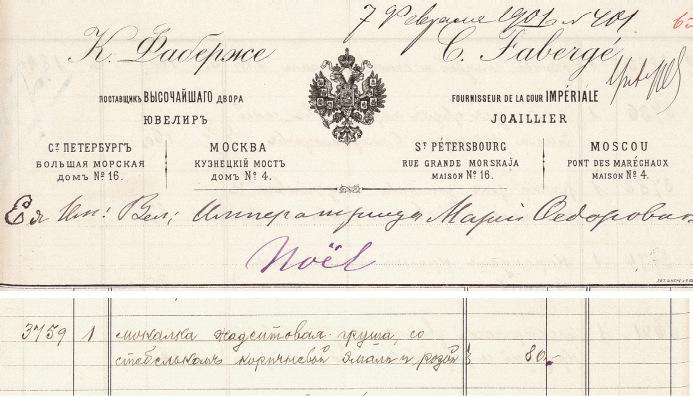 7 Февраля 1901 № 401
К. Фаберже
C. Fabergé
ПОСТАВЩИКЪ ВЫСОЧАЙШАГО ДВОРА
ЮВЕЛИРЪ
FOURNISSEUR DE LA COUR IMPÉRIALE
JOAILLIER
Сᵀ ПЕТЕРБУРГЪ
БОЛЬШАЯ МОРСКАЯ
ДОМЪ № 16.
МОСКВА
КУЗНЕЦКІЙ МОСТЪ
ДОМЪ № 4.
Sᵀ PÉTERSBOURG
RUE GRANDE MORSKAJA
MAISON № 16.
MOSCOU
PONT DES MARÉCHAUX
MAISON № 4.
Ея Имп: Вел; Императрицы Маріи Ѳедоровны
Noël
3759 1 мокалка жадеитовая груша, со
стебелькомъ коричневой эмали и розой 80.-